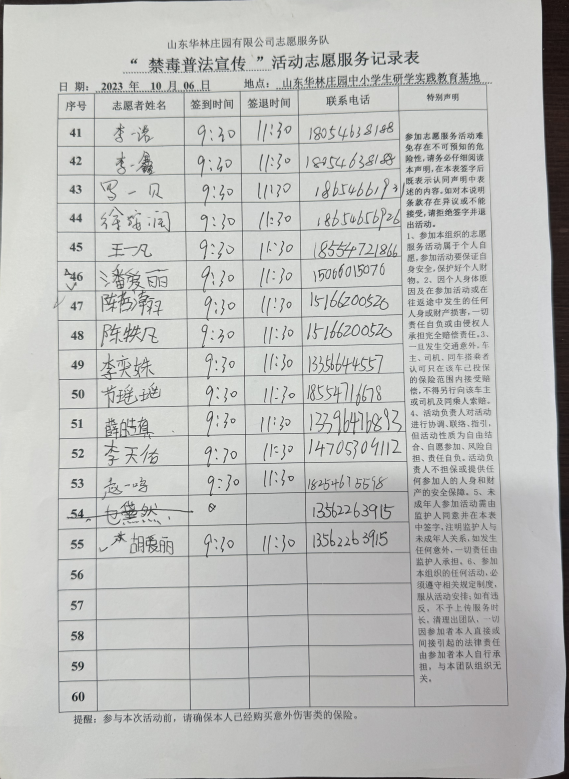 山东华林庄园有限公司志愿服务队
“ 禁毒普法宣传 ”活动志愿服务记录表
日 期: 2023 年 10 月 06 日 地点: 山东华林庄园中小学生研学实践教育基地
序号 志愿者姓名 签到时间 签退时间 联系电话 特别声明
41 李一诺 9:30 11:30 18054638188
42 李一鑫 9:30 11:30 18054638188
43 一贝 9:30 11:30 18654661931
44 徐 润 9:30 11:30 18654656926
45 王一凡 9:30 11:30 18554721866
46 潘爱丽 9:30 11:30 15066015076
47 陈 9:30 11:30 15166200520
48 陈轶凡 9:30 11:30 15166200520
49 李奕姝 9:30 11:30 13356644557
50 肖瑶瑶 9:30 11:30 18554716678
51 薛皓真 9:30 11:30 13396476893
52 李天佑 9:30 11:30 14705309112
53 赵一鸣 9:30 11:30 18254675598
54 黛然 13562263915
55 胡爱丽 9:30 11:30 13562263915
56
57
58
59
60
参加志愿服务活动难
免存在不可预知的危
险性,请务必仔细阅读
本声明,在本表签字后
既表示认同声明中表
述的内容,如对本说明
条款存在异议或不能
接受,请拒绝签字并退
出活动。
1、参加本组织的志愿
服务活动属于个人自
愿,参加活动要保证自
身安全,保护好个人财
物。2、因个人身体原
因及在参加活动或在
往返途中发生的任何
人身或财产损害,一切
责任自负或由侵权人
承担完全赔偿责任。3、
一旦发生交通意外,车
主、司机、同车搭乘者
认可只在该车已投保
的保险范围内接受赔
偿,不得另行向该车主
或司机及同乘人索赔。
4、活动负责人对活动
进行协调、联络、指引,
但活动性质为自由结
合、自愿参加、风险自
担、责任自负。活动负
责人不担保或提供任
何参加人的人身和财
产的安全保障。5、未
成年人参加活动需由
监护人同意并在本表
中签字,注明监护人与
未成年人关系,如发生
任何意外,一切责任由
监护人承担。6、参加
本组织的任何活动,必
须遵守相关规定制度、
服从活动安排;如有违
反,不予上传服务时
长,清理出团队,一切
因参加者本人直接或
间接引起的法律责任
由参加者本人自行承
担,与本团队组织无
关。
提醒:参与本次活动前,请确保本人已经购买意外伤害类的保险。